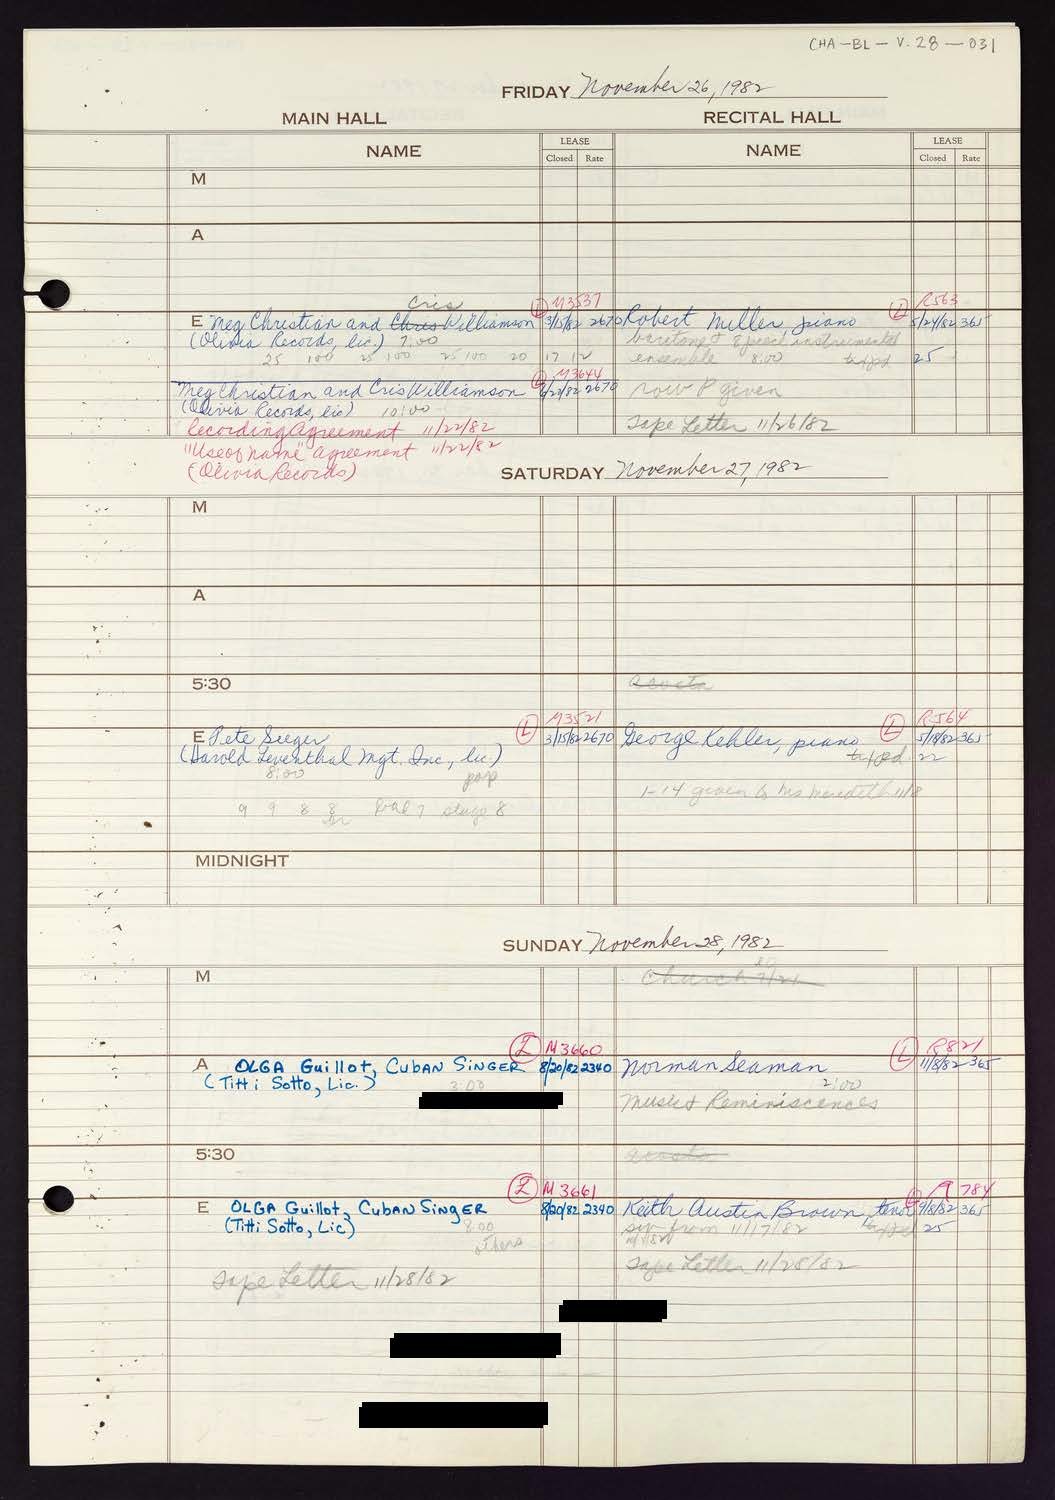 CHA-BL-V.28-031
FRIDAY November 26, 1982
MAIN HALL
RECITAL HALL
NAME
LEASE
Closed
Rate
NAME
LEASE
Closed
Rate
M
A
Cris
L M3537
E Meg Christian and Chris Williamson 3/15/82 2670
(Olivia Records, lic.) 7:00
25 100 25 100 25 100 20 17 12
L M3644
Meg Christian and Cris Williamson 2670
(Olivia Records, lic) 10:00
Recording Agreement 11/22/82
"Use of Name" Agreement 11/22/82
(Olivia Records)
L R563
Robert Miller, piano 5/24/82 365
baritone & instrumental
ensemble 8:00 25
row P given
Tape Letter 11/26/82
SATURDAY November 27, 1982
M
A
5:30
L M3521
E Pete Seeger 3/15/82 2670
(Harold Leventhal Mgt. Inc., lic)
8:00 pop
9 9 8 8 7 stage 8
L R564
George Kehler, piano 5/18/82 365
22
1-14 given to Ms Meredith 11/8
MIDNIGHT
SUNDAY November 28, 1982
M
Church
L M3660
A OLGA Guillot, CUBAN SINGER 8/20/82 2340
(Titti Sotto, Lic.) 3:00
L R821
Norman Seaman 11/8/82 365
2:00
Music & Reminiscences
5:30
L M3661
E OLGA Guillot, CUBAN SINGER 8/20/82 2340
(Titti Sotto, Lic) 8:00
others
Tape Letter 11/28/82
L R784
Keith Austin Brown, tenor 9/8/82 365
from 11/17/82 25
Tape Letter 11/28/82